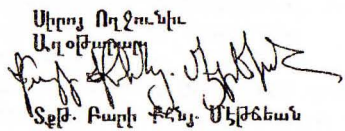 Սիրոյ Ողջունիւ
Աղօթարար
Տքթ. Բարի Քհնյ. Մէթճեան